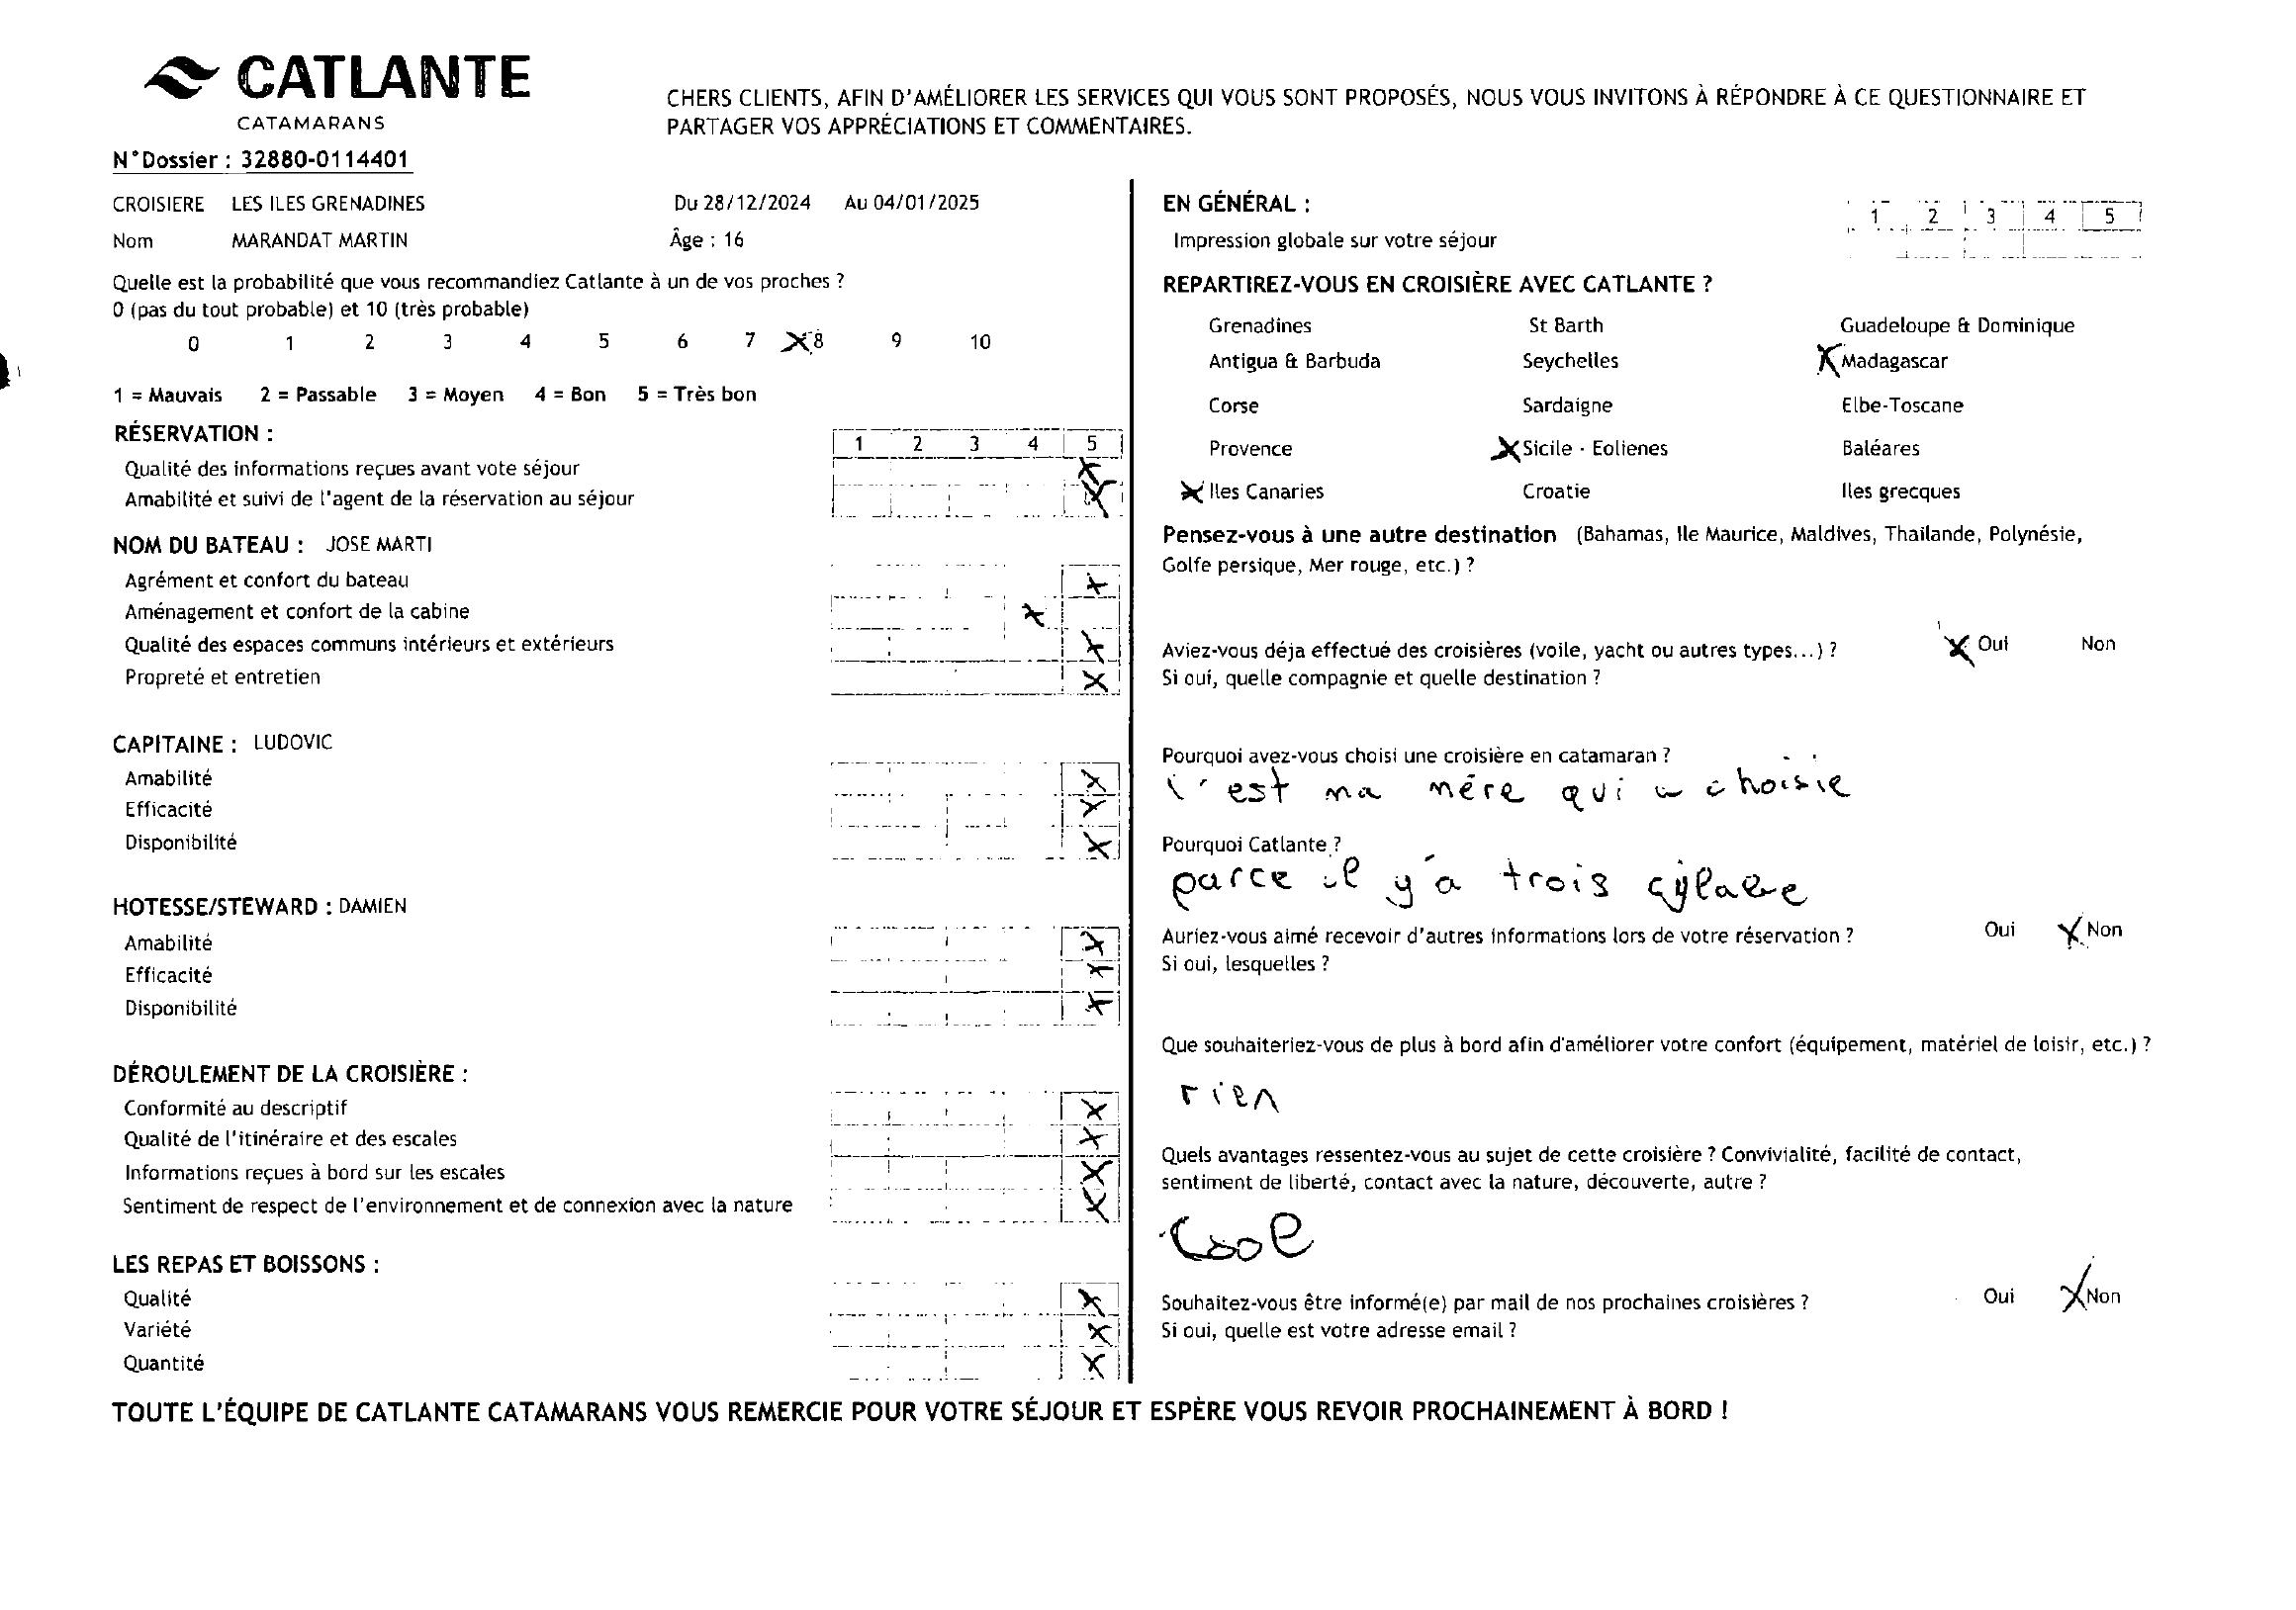 CATLANTE
CATAMARANS
CHERS CLIENTS, AFIN D'AMÉLIORER LES SERVICES QUI VOUS SONT PROPOSÉS, NOUS VOUS INVITONS À RÉPONDRE À CE QUESTIONNAIRE ET
PARTAGER VOS APPRÉCIATIONS ET COMMENTAIRES.
N°Dossier : 32880-0114401
CROISIERE LES ILES GRENADINES Du 28/12/2024 Au 04/01/2025
Nom MARANDAT MARTIN Âge : 16
Quelle est la probabilité que vous recommandiez Catlante à un de vos proches ?
0 (pas du tout probable) et 10 (très probable)
0 1 2 3 4 5 6 7 X 8 9 10
1 = Mauvais 2 = Passable 3 = Moyen 4 = Bon 5 = Très bon
RÉSERVATION : 1 2 3 4 5
Qualité des informations reçues avant vote séjour X
Amabilité et suivi de l'agent de la réservation au séjour X
NOM DU BATEAU : JOSE MARTI
Agrément et confort du bateau X
Aménagement et confort de la cabine X
Qualité des espaces communs intérieurs et extérieurs X
Propreté et entretien X
CAPITAINE : LUDOVIC
Amabilité X
Efficacité X
Disponibilité X
HOTESSE/STEWARD : DAMIEN
Amabilité X
Efficacité X
Disponibilité X
DÉROULEMENT DE LA CROISIÈRE :
Conformité au descriptif X
Qualité de l'itinéraire et des escales X
Informations reçues à bord sur les escales X
Sentiment de respect de l'environnement et de connexion avec la nature X
LES REPAS ET BOISSONS :
Qualité X
Variété X
Quantité X
EN GÉNÉRAL : 1 2 3 4 5
Impression globale sur votre séjour
REPARTIREZ-VOUS EN CROISIÈRE AVEC CATLANTE ?
Grenadines St Barth Guadeloupe & Dominique
Antigua & Barbuda Seychelles X Madagascar
Corse Sardaigne Elbe-Toscane
Provence X Sicile - Eolienes Baléares
X Iles Canaries Croatie Iles grecques
Pensez-vous à une autre destination (Bahamas, Ile Maurice, Maldives, Thailande, Polynésie,
Golfe persique, Mer rouge, etc.) ?
Aviez-vous déja effectué des croisières (voile, yacht ou autres types...) ? X Oui Non
Si oui, quelle compagnie et quelle destination ?
Pourquoi avez-vous choisi une croisière en catamaran ?
c'est ma mére qui a choisie
Pourquoi Catlante ?
parce il y'a trois
Auriez-vous aimé recevoir d'autres informations lors de votre réservation ? Oui X Non
Si oui, lesquelles ?
Que souhaiteriez-vous de plus à bord afin d'améliorer votre confort (équipement, matériel de loisir, etc.) ?
rien
Quels avantages ressentez-vous au sujet de cette croisière ? Convivialité, facilité de contact,
sentiment de liberté, contact avec la nature, découverte, autre ?
Cool
Souhaitez-vous être informé(e) par mail de nos prochaines croisières ? Oui X Non
Si oui, quelle est votre adresse email ?
TOUTE L'ÉQUIPE DE CATLANTE CATAMARANS VOUS REMERCIE POUR VOTRE SÉJOUR ET ESPÈRE VOUS REVOIR PROCHAINEMENT À BORD !